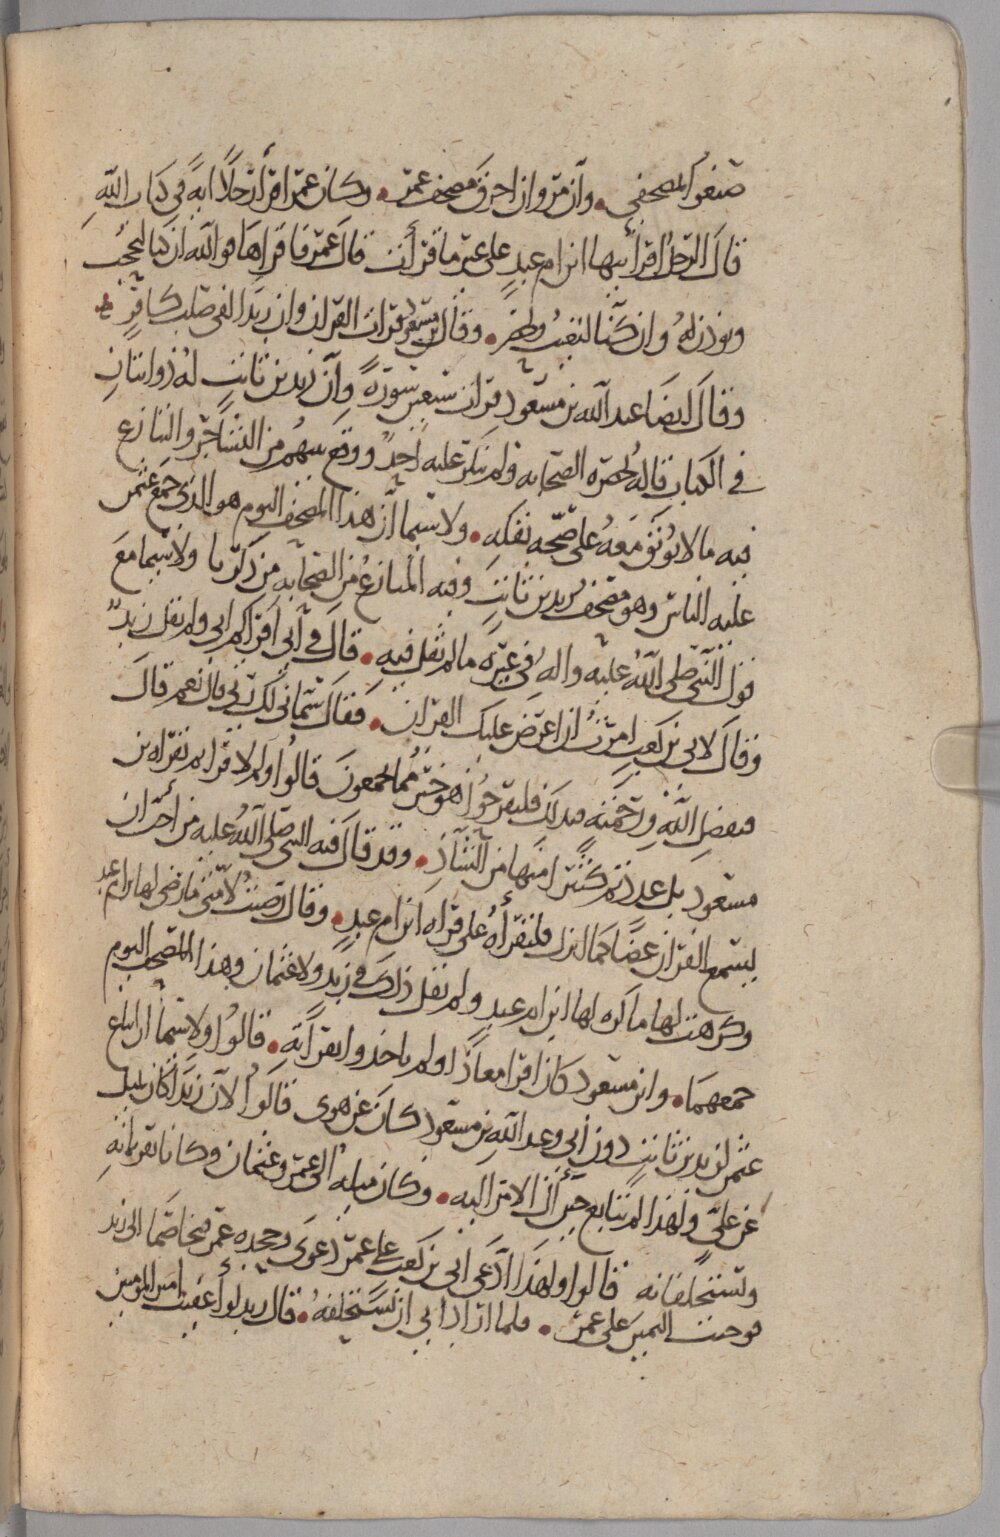 صنعوا بمصحفي • وان مروان احرق مصحف عمر • وكان عمر اقرأ رجلاً ايةً في كتاب الله
قال الرجل اقرأنيها ابن ام عبد على غير ما قرأت قال عمر فاقراها فوالله ان كنا لنحجب
ويوذن له وان كنا لنغيب ويحضر • وقال ابن مسعود قرات القران وان زيدا لفي صلب كافر
وقال ايضا عبد الله بن مسعود قرات سبعين سورة وان زيد بن ثابت له ذوابتان
في الكتاب قاله بحضرة الصحابه ولم ينكر عليه احد ووقع بينهم من التشاجر والتنازع
فيه ما لا يوثق معه على صحة نقله • ولا سيما ان هذا المصحف اليوم هو الذي جمع عثمن
عليه الناس وهو مصحف زيد بن ثابت وفيه المنازع من الصحابه من ذكرنا ولا سيما مع
قول النبي صلى الله عليه واله في غيره ما لم يقل فيه • قال في أبي اقراكم ابي ولم يقل زيد
وقال لابي بن كعب امرت ان اعرض عليك القران • فقال سماني لك ربي قال نعم قال
بفضل الله ورحمته فبذلك فليفرحوا هو خير مما يجمعون قالوا ولم لا قرا بقراه ابن
مسعود بل عدلتم كثيرا منها من الشاذ • وقد قال فيه النبي صلى الله عليه من أحب ان
يسمع القران غضا كما انزل فليقرأه على قراه ابن ام عبد • وقال رضيت لامتي ما رضي لها ابن ام عبد
وكرهت لها ما كره لها ابن ام عبد ولم يقل ذلك في زيد ولا عثمان وهذا المصحف اليوم
جمعهما • وابن مسعود كان اقرا معاذا ولم ياخذوا بقرأته • قالوا ولا سيما اتباع
عثمن لزيد بن ثابت دون أبي وعبد الله بن مسعود كان عن هوى قالوا لان زيدا كان يميل
عن علي ولهذا لم يتابع حين آل الامر اليه • وكان ميله الى عمر وعثمان وكانا يقربانه
ويستخلفانه قالوا ولهذا ادعى ابي بن كعب على عمر دعوى وجحده عمر فتخاصما الى زيد
فوجبت اليمين على عمر • فلما اراد ابي ان يستحلفه • قال زيد لو أعفيت امير المومنين